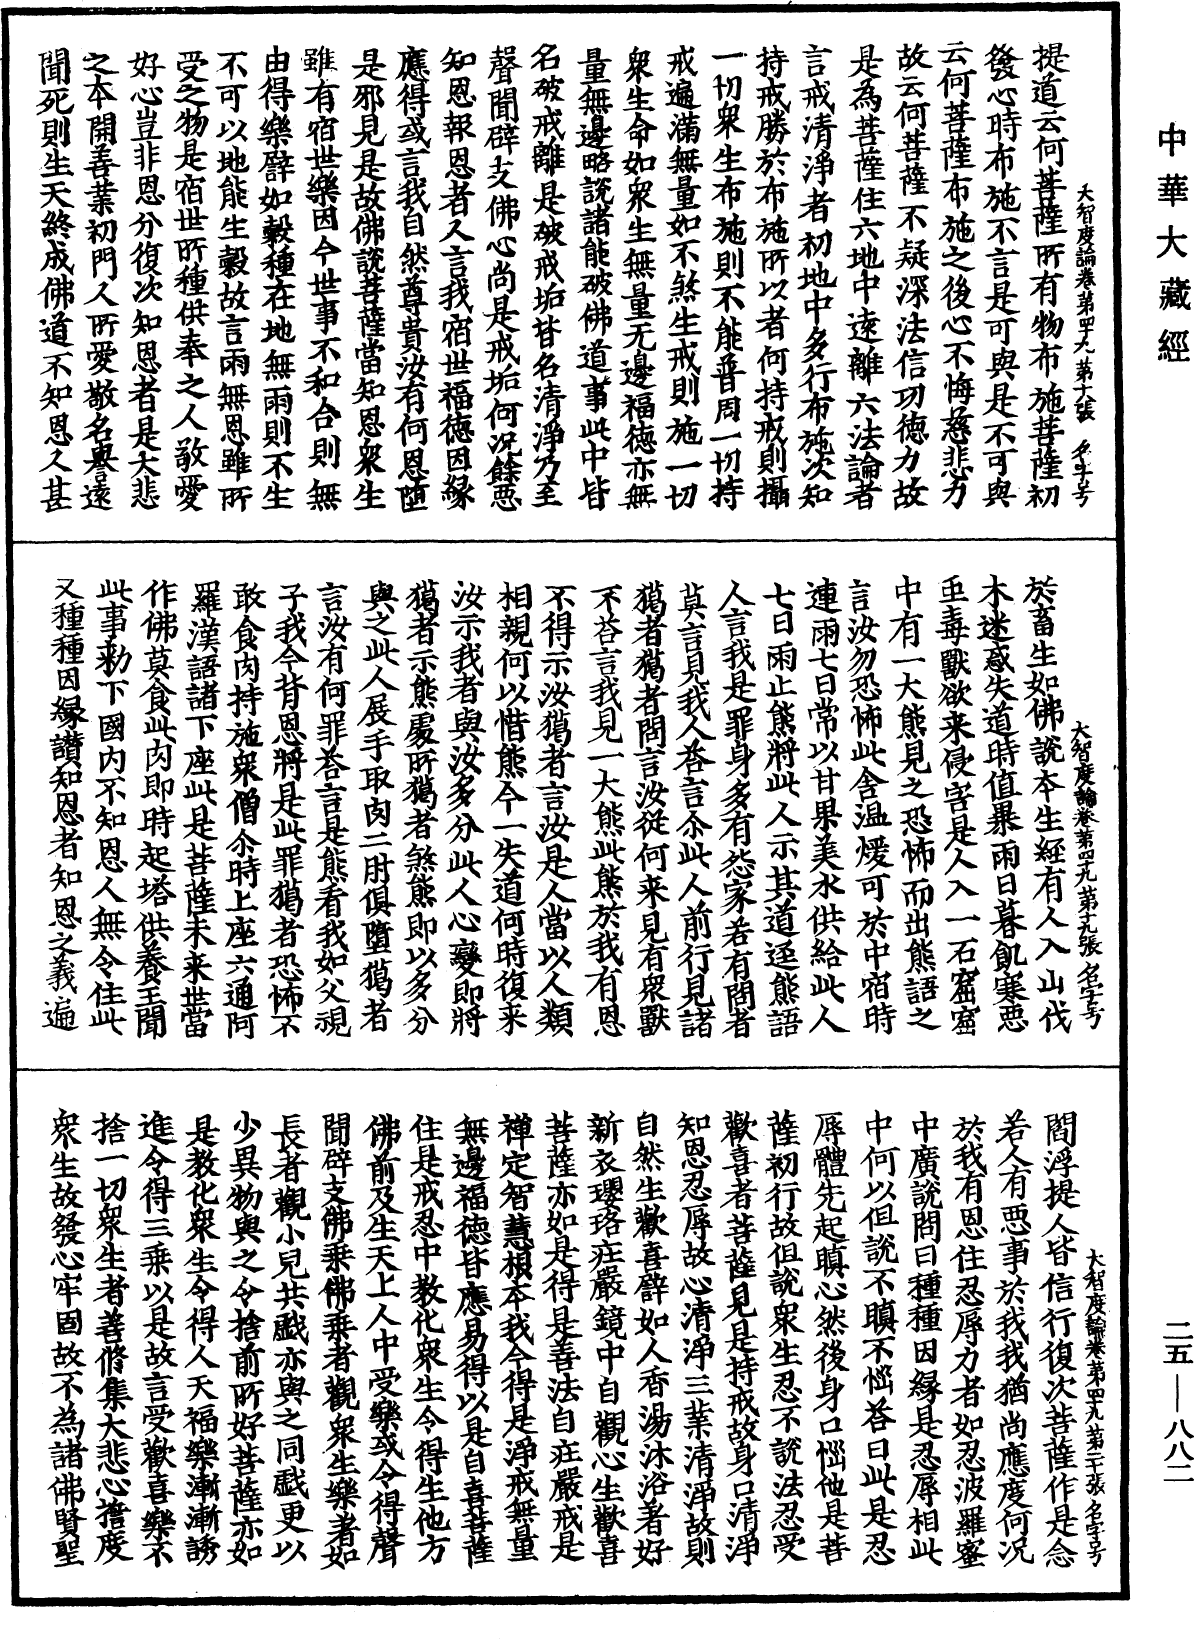 中華大藏經
二五—八八二
大智度論卷第四十九 第十八張 名字号
提道云何菩薩所有物布施菩薩初
發心時布施不言是可與是不可與
云何菩薩布施之後心不悔慈悲力
故云何菩薩不疑深法信功德力故
是為菩薩住六地中遠離六法論者
言戒清淨者初地中多行布施次知
持戒勝於布施所以者何持戒則攝
一切衆生布施則不能普周一切持
戒遍滿無量如不煞生戒則施一切
衆生命如衆生無量无邊福德亦無
量無邊略說諸能破佛道事此中皆
名破戒離是破戒垢皆名清淨乃至
聲聞辟支佛心尚是戒垢何況餘惡
知恩報恩者人言我宿世福德因緣
應得或言我自然尊貴汝有何恩墮
是邪見是故佛說菩薩當知恩衆生
雖有宿世樂因今世事不和合則無
由得樂譬如穀種在地無雨則不生
不可以地能生穀故言雨無恩雖所
受之物是宿世所種供奉之人敬愛
好心豈非恩分復次知恩者是大悲
之本開善業初門人所愛敬名譽遠
聞死則生天終成佛道不知恩人甚
大智度論卷第四十九 第十九張 名字号
於畜生如佛說本生經有人入山伐
木迷惑失道時值暴雨日暮飢寒惡
虫毒獸欲来侵害是人入一石窟窟
中有一大熊見之恐怖而出熊語之
言汝勿恐怖此舍温煖可於中宿時
連雨七日常以甘果美水供給此人
七日雨止熊將此人示其道逕熊語
人言我是罪身多有怨家若有問者
莫言見我人荅言尒此人前行見諸
獦者獦者問言汝從何来見有衆獸
不荅言我見一大熊此熊於我有恩
不得示汝獦者言汝是人當以人類
相親何以惜熊今一失道何時復来
汝示我者與汝多分此人心變即將
獦者示熊處所獦者煞熊即以多分
與之此人展手取肉二肘俱墮獦者
言汝有何罪荅言是熊看我如父視
子我今背恩將是此罪獦者恐怖不
敢食肉持施衆僧尒時上座六通阿
羅漢語諸下座此是菩薩未来世當
作佛莫食此肉即時起塔供養王聞
此事勑下國内不知恩人無令住此
又種種因緣讃知恩者知恩之義遍
大智度論卷第四十九 第二十張 名字号
閻浮提人皆信行復次菩薩作是念
若人有惡事於我我猶尚應度何況
於我有恩住忍辱力者如忍波羅蜜
中廣說問曰種種因緣是忍辱相此
中何以但說不瞋不惱荅曰此是忍
辱體先起瞋心然後身口惱他是菩
薩初行故但說衆生忍不說法忍受
歡喜者菩薩見是持戒故身口清淨
知恩忍辱故心清淨三業清淨故則
自然生歡喜譬如人香湯沐浴著好
新衣瓔珞莊嚴鏡中自觀心生歡喜
菩薩亦如是得是善法自莊嚴戒是
禪定智慧根本我今得是淨戒無量
無邊福德皆應易得以是自喜菩薩
住是戒忍中教化衆生令得生他方
佛前及生天上人中受樂或令得聲
聞辟支佛乘佛乘者觀衆生樂著如
長者觀小兒共戲亦與之同戲更以
少異物與之令捨前所好菩薩亦如
是教化衆生令得人天福樂漸漸誘
進令得三乘以是故言受歡喜樂不
捨一切衆生者善脩集大悲心擔度
衆生故發心牢固故不為諸佛賢聖